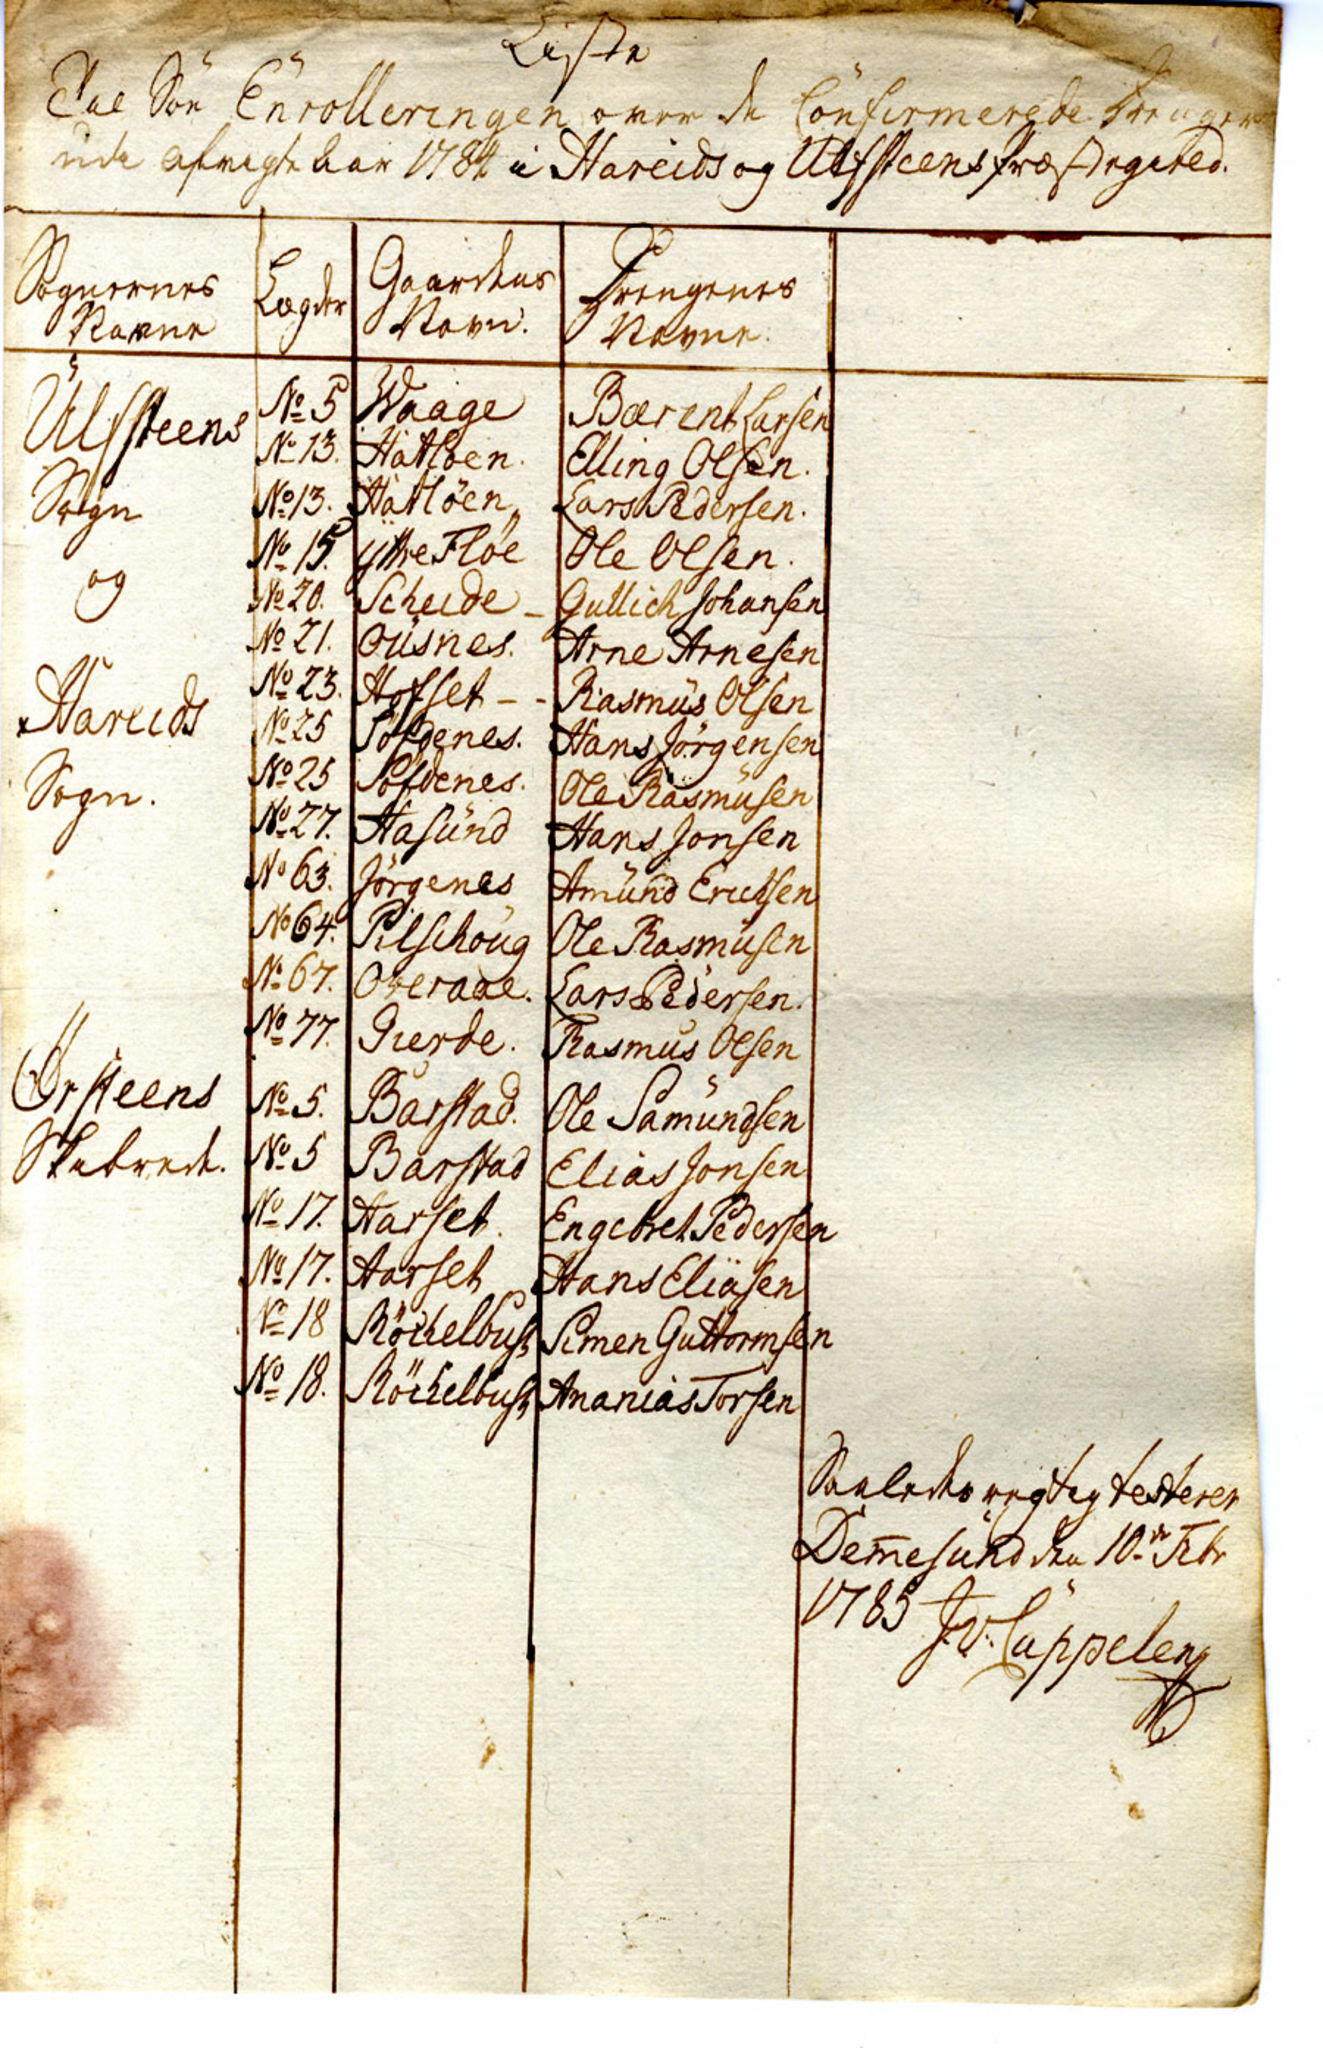 Liste
Til Söe Enrolleringen over de Confirmerede Drenger
udi afvigte Aar 1784 i Hareids og Ulfsteens Præstegield.
Sognernes Navne | Lægder | Gaardens Navn. | Drengenes Navne.
Ulfsteens | No 5 | Waage | Bærent Larsen
No 13. | Hatlöen. | Elling Olsen.
Sogn | No 13. | Hatlöen | Lars Pedersen.
No 15. | Yttre Flöe | Ole Olsen.
og | No 20. | Scheide | Gullich Johansen
No 21. | Ousnes. | Arne Arnesen
Hareids | No 23. | Hofset | Rasmus Olsen
No 25 | Göfdenes. | Hans Jörgensen
Sogn. | No 25 | Göfdenes. | Ole Rasmusen
No 27. | Hasund | Hans Jonsen
No 63. | Jörgenes | Amund Erichsen
No 64. | Pilschoug | Ole Rasmusen
No 67. | Overaae. | Lars Pedersen.
No 77. | Gierde. | Rasmus Olsen
Ørsteens | No 5. | Barstad. | Ole Samundsen
Skibrede. | No 5 | Barstad | Elias Jonsen
No 17. | Aarset. | Engebret Pedersen
No 17. | Aarset | Hans Eliasen
No 18 | Röchelbust | Simen Guttormsen
No 18. | Röchelbust | Ananias Torsen
Saaledes rigtig testerer
Demesund den 10de Febr
1785 J. v. Cappelen